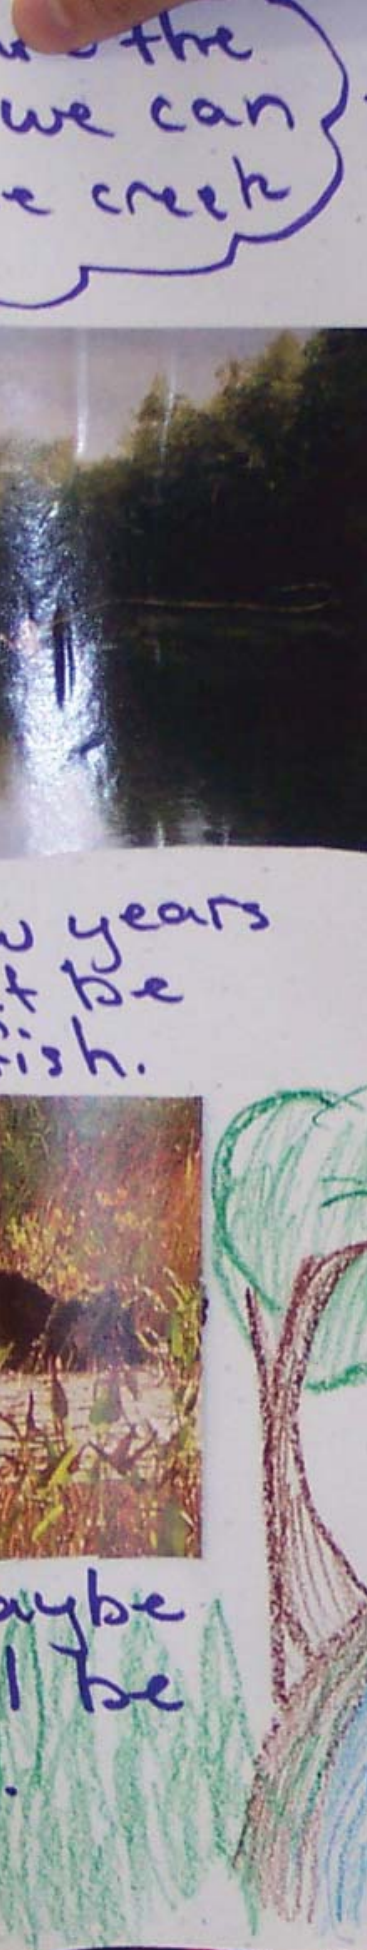 the
we can
e creek
years
be
ish.
aybe
l be
.